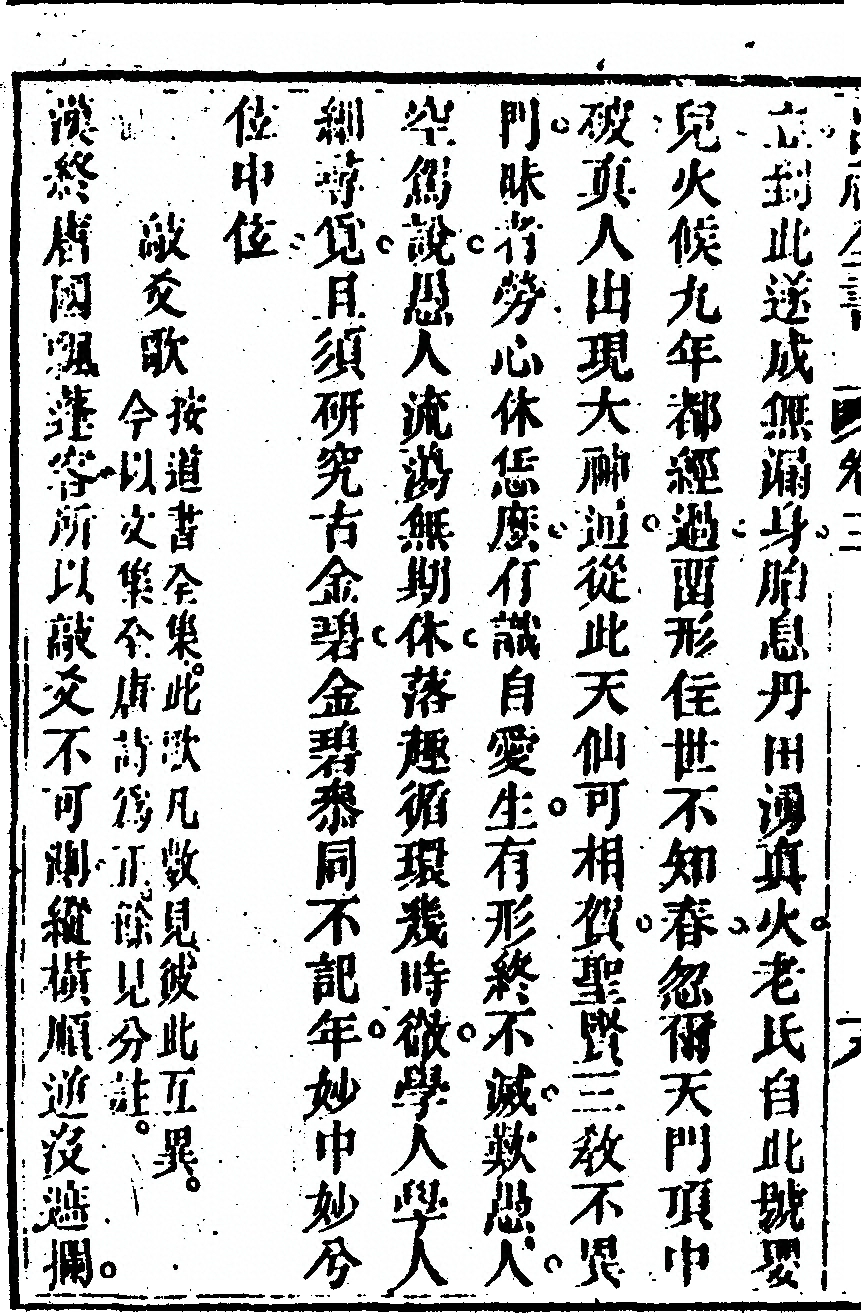 立到此遂成無漏身胎息丹田湧真火老氏自此號嬰
兒火候九年都經過留形住世不知春忽爾天門頂中
破真人出現大神通從此天仙可相賀聖賢三教不異
門昧者勞心休恁麽有識自愛生有形終不滅歎愚人
空駕說愚人流蕩無期休落趣循環幾時徹學人學人
細尋覓且須研究古金碧金碧參同不記年妙中妙兮
位中位
敲爻歌
按道書全集。此歌凡數見彼此互異。
今以文集全唐詩爲正。餘見分註。
漢終唐國飄蓬客所以敲爻不可測縱橫順逆沒遮攔。